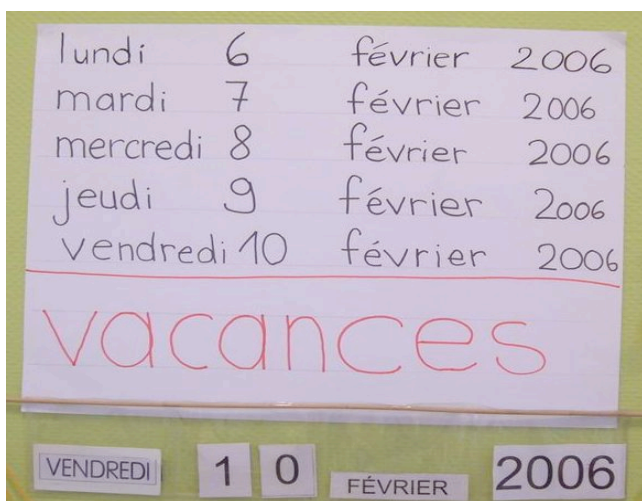 lundi 6 février 2006
mardi 7 février 2006
mercredi 8 février 2006
jeudi 9 février 2006
vendredi 10 février 2006
vacances
VENDREDI 1 0 FÉVRIER 2006